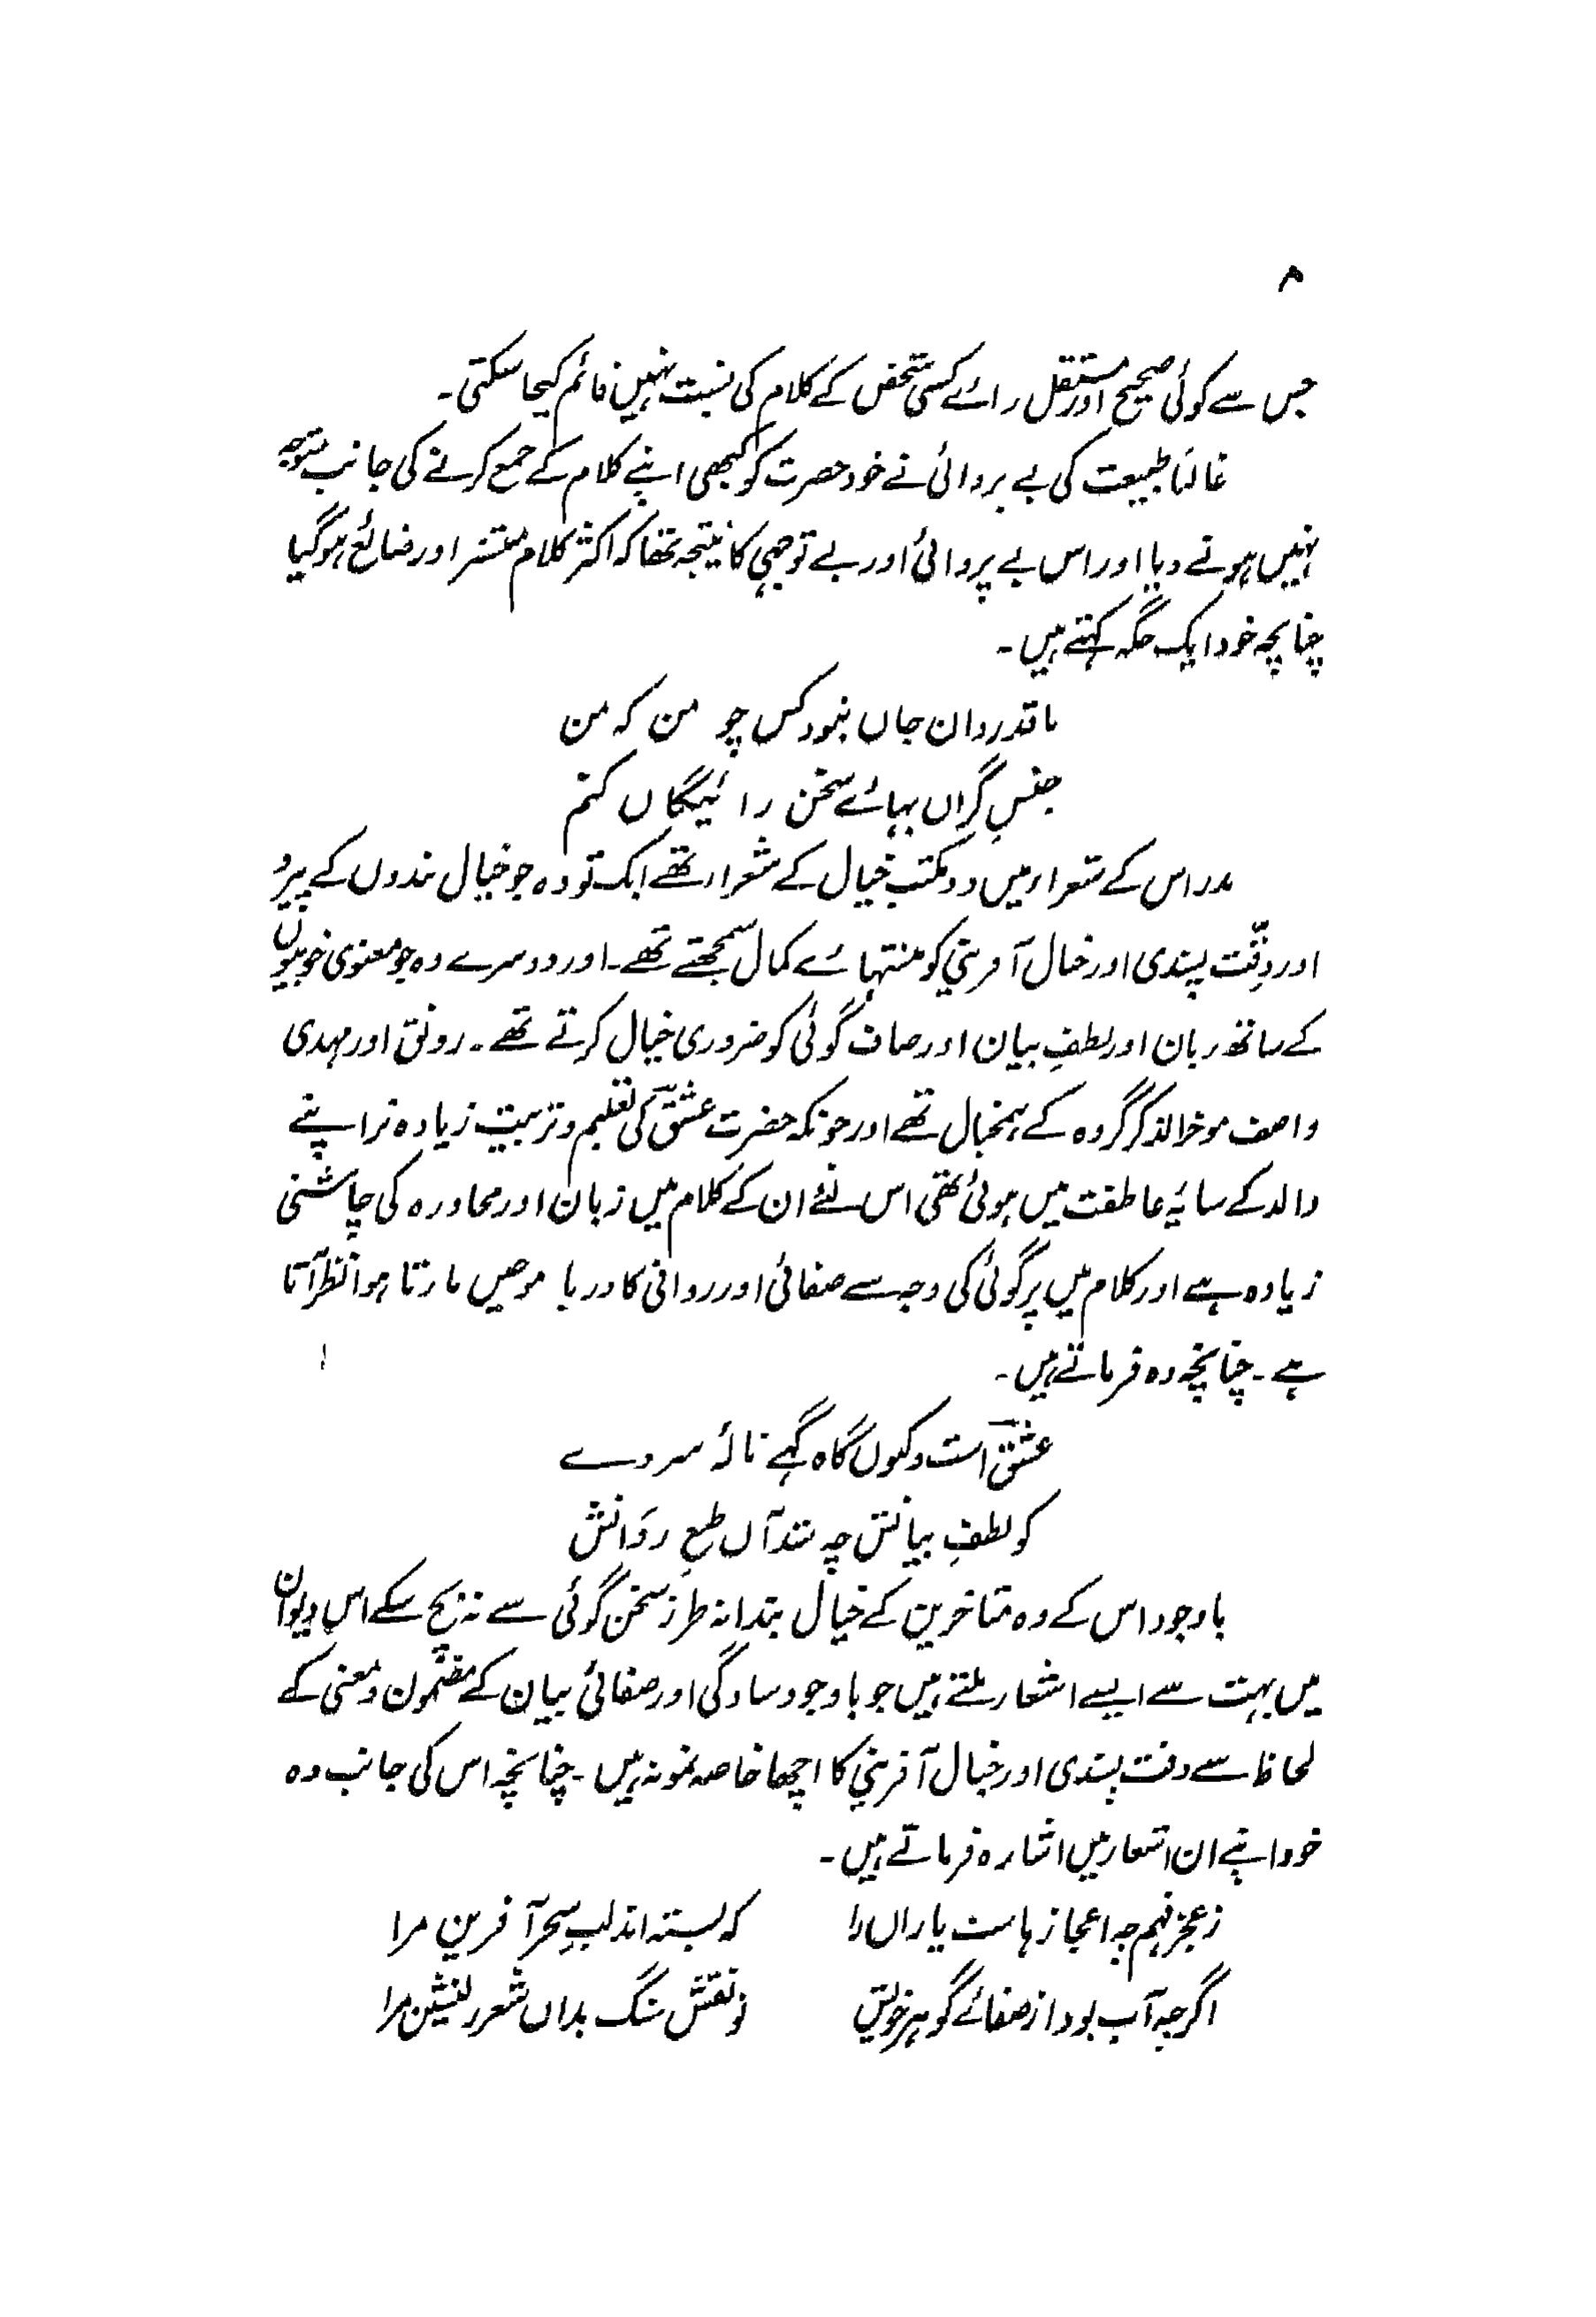 ۸
جس سے کوئی صحیح اور مستقل رائے کسی شخص کے کلام کی نسبت نہیں قائم کیجا سکتی۔
غالباً طبیعت کی بے پروائی نے خود حضرت کو کبھی اپنے کلام کے جمع کرنے کی جانب متوجہ
نہیں ہونے دیا اور اس بے پروائی اور بے توجہی کا نتیجہ تھا کہ اکثر کلام منتشر اور ضائع ہو گیا
چنانچہ خود ایک جگہ کہتے ہیں۔
ناقدردان جاں نبود کس چو من کہ من
جنسِ گراں بہائے سخن رائیگاں کنم
مدراس کے شعراء میں دو مکتب خیال کے شعراء تھے ایک تو وہ جو خیال بندوں کے پیرو
اور دقّت پسندی اور خیال آفرینی کو منتہائے کمال سمجھتے تھے۔ اور دوسرے وہ جو معنوی خوبیوں
کے ساتھ زبان اور لطفِ بیان اور صاف گوئی کو ضروری خیال کرتے تھے۔ رونق اور مہدی
واصف موخرالذکر گروہ کے ہمخیال تھے اور چونکہ حضرت عشقؔ کی تعلیم و تربیت زیادہ تر اپنے
والد کے سایۂ عاطفت میں ہوئی تھی اس لئے ان کے کلام میں زبان اور محاورہ کی چاشنی
زیادہ ہے اور کلام میں پرگوئی کی وجہ سے صفائی اور روانی کا دریا موجیں مارتا ہوا نظر آتا
ہے۔ چنانچہ وہ فرماتے ہیں۔
عشقؔ است و کنوں گاہ گہے نالۂ سردے
کو لطفِ بیانش چہ شد آں طبعِ رَوانش
باوجود اس کے وہ متاخرین کے خیال بندانہ طرز سخن گوئی سے نہ بچ سکے اس دیوان
میں بہت سے ایسے اشعار ملتے ہیں جو باوجود سادگی اور صفائی بیان کے مضمون و معنی کے
لحاظ سے دقت پسندی اور خیال آفرینی کا اچھا خاصہ نمونہ ہیں۔ چنانچہ اس کی جانب وہ
خود اپنے ان اشعار میں اشارہ فرماتے ہیں۔
ز عجز فہم چہ اعجازہاست یاراں را    کہ بستہ اند لبِ سحر آفرین مرا
اگرچہ آب بود از صفائے گوہر خویش    چو نقش سنگ بداں شعر دلنشین مرا